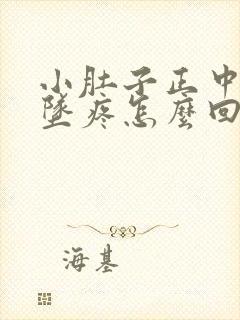 小肚子正中
墜疼怎麼回
海基